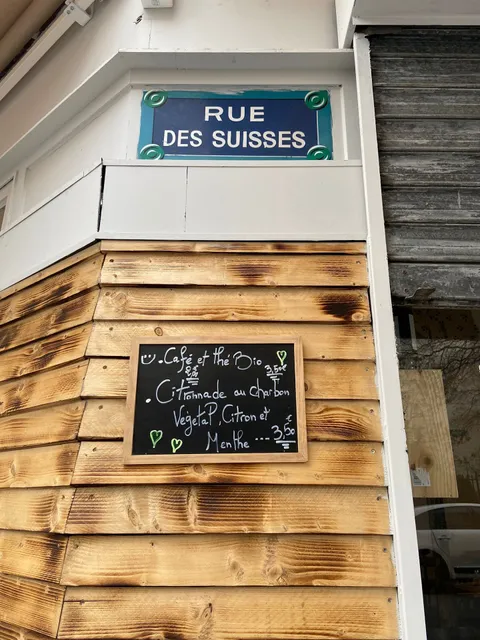 RUE
DES SUISSES
. Café et thé Bio
3,50€
. Citronnade au charbon
VégétaP, Citron et
Menthe .... 3,50€